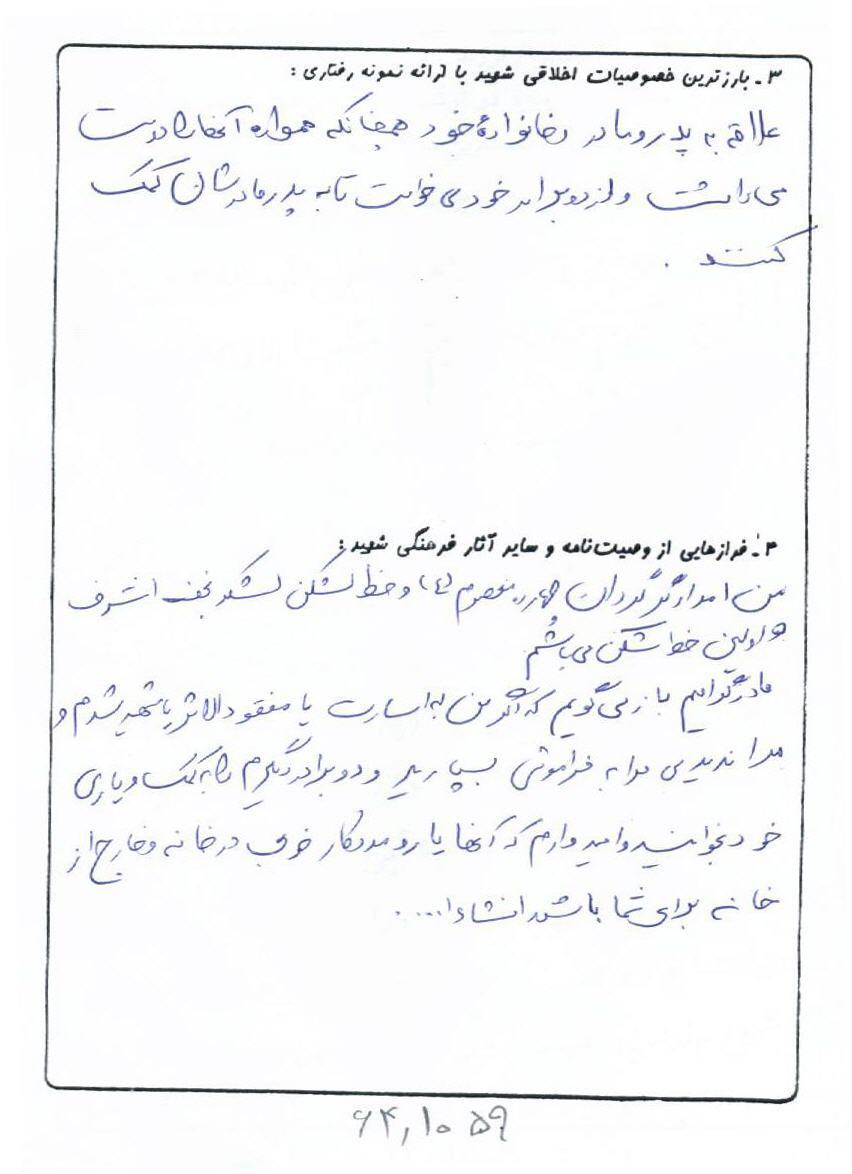 ۳ـ بارزترین خصوصیات اخلاقی شهید با ارائه نمونه رفتاری :
علاقه به پدر و مادر و خانوادهٔ خود همچنانکه همواره آنها را دوست
می داشت و از دو برادر خود می خواست تا به پدر و مادرشان کمک
کنند .
۴ـ فرازهایی از وصیت‌نامه و سایر آثار فرهنگی شهید :
من امدادگر گردان چهارده معصوم (ع) و خط شکن لشکر نجف اشرف
و اولین خط شکن می باشم
مادر گرامیم باز می گویم که اگر من به اسارت یا مفقود الاثر یا شهید شدم و
مرا ندیدی مرا به فراموشی بسپارید و دو برادر دیگرم را به کمک و یاری
خود بخوانید و امیدوارم که آنها یار و مددکار خوبی در خانه و خارج از
خانه برای شما باشند انشاءا.....
۶۴,۱۰۵۹